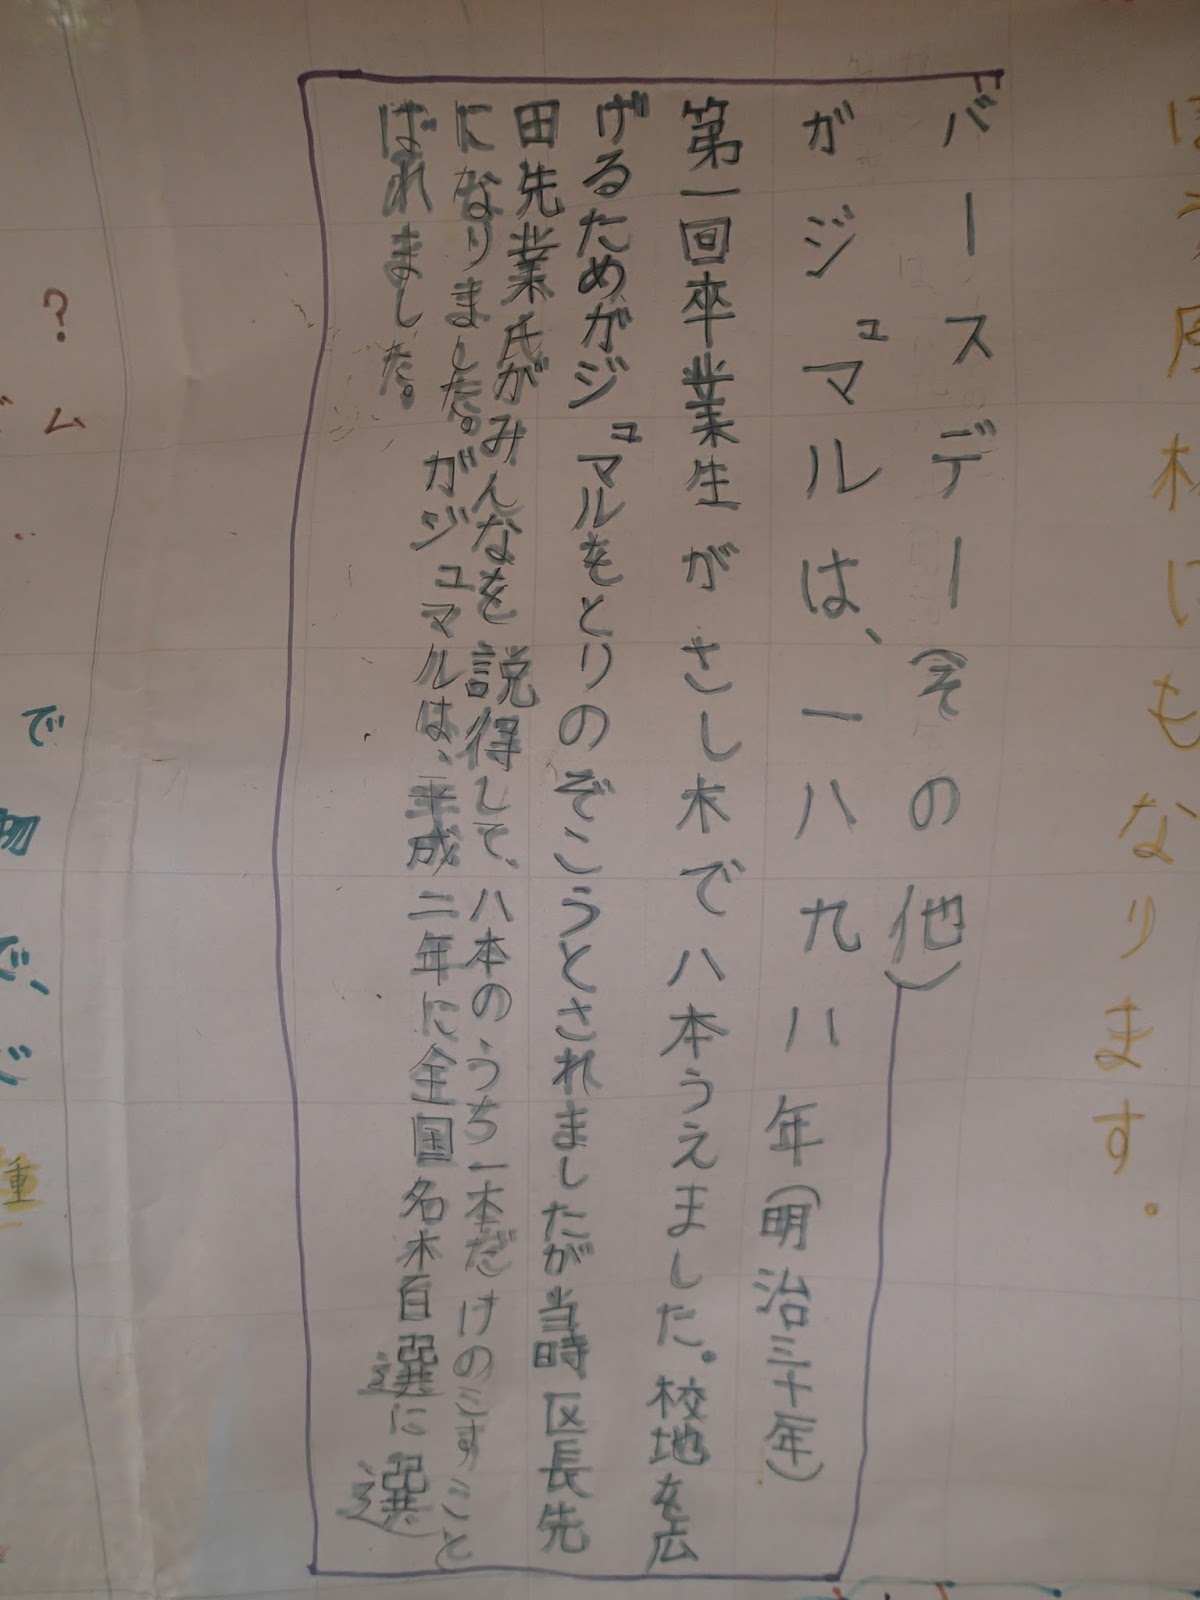 なります。
バースデー(その他)
ガジュマルは、一八九八年(明治三十年)
第一回卒業生がさし木で八本うえました。校地を広
げるためガジュマルをとりのぞこうとされましたが当時区長先
田先業氏がみんなを説得して、八本のうち一本だけのこすこと
になりました。ガジュマルは、平成二年に全国名木百選に選
ばれました。